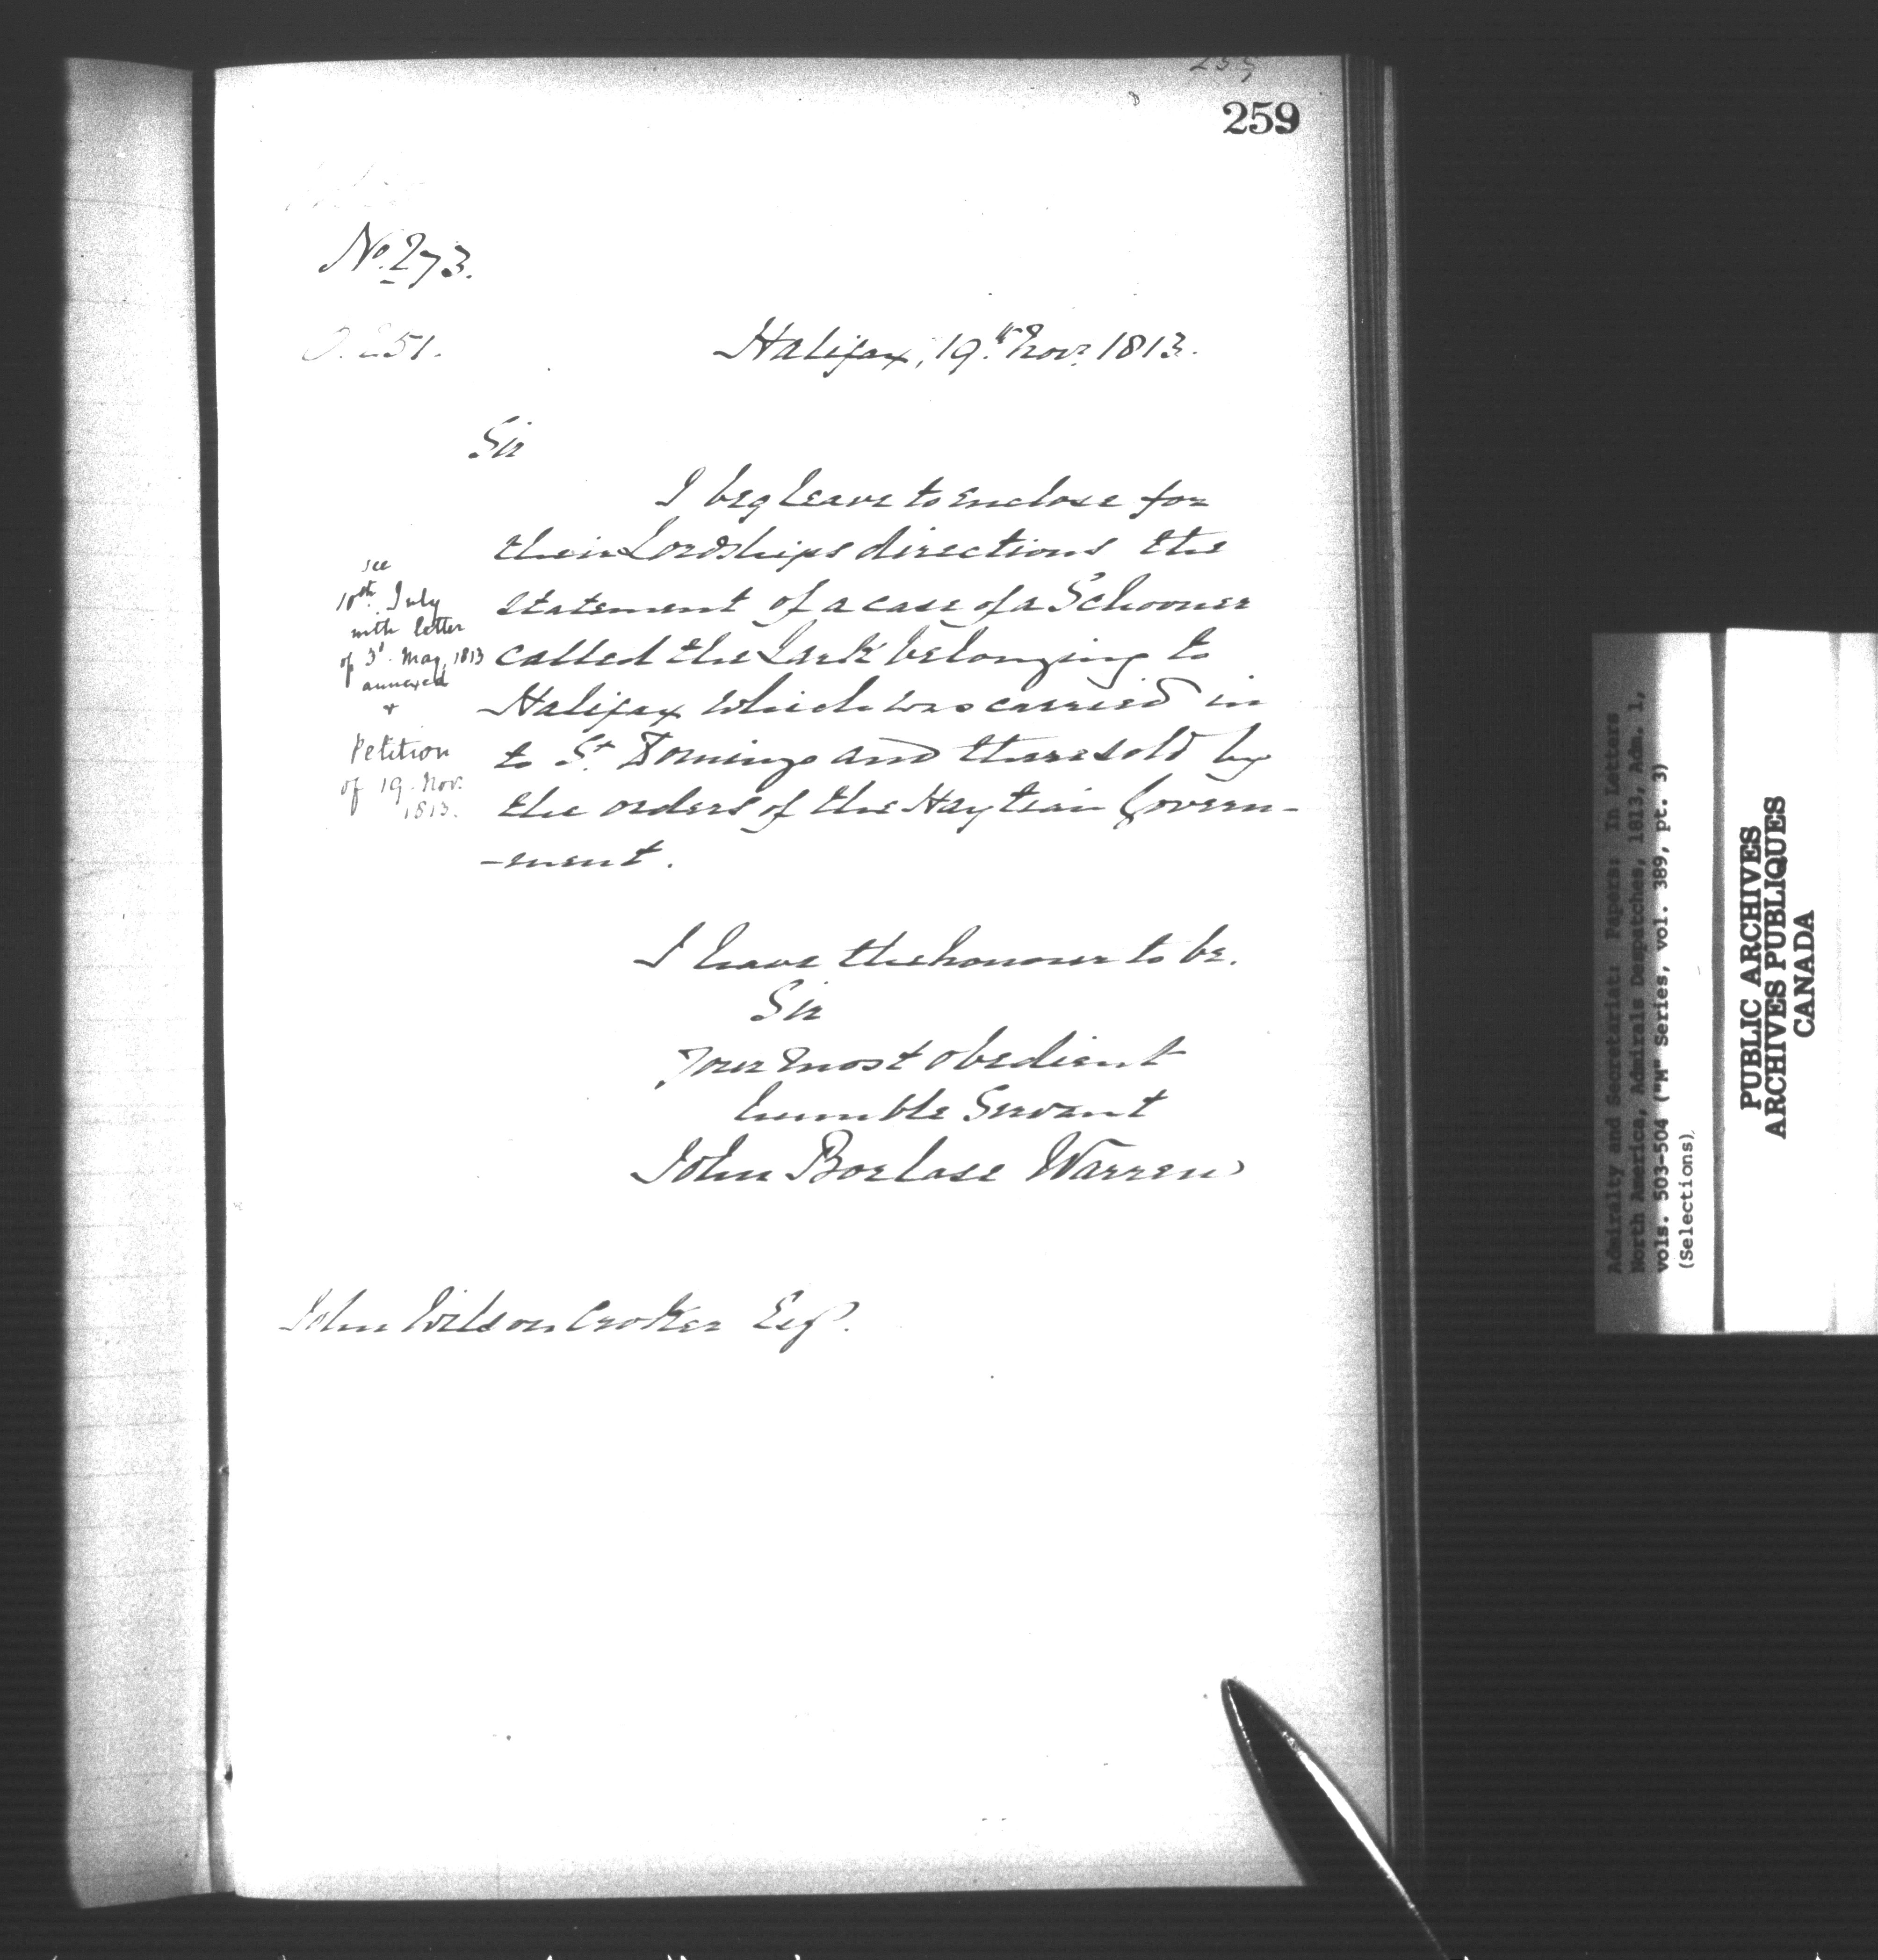 259
No. 273.
O. 251.
Halifax, 19th Novr. 1813.
Sir
I beg leave to enclose for
their Lordships directions the
statement of a case of a Schooner
called the Lark belonging to
Halifax which was carried in
to St. Domingo and there sold by
the orders of the Haytian Govern-
-ment.
see
10th July
with letter
of 3d. May, 1813
annexed
+
Petition
of 19. Nov.
1813.
I have the honour to be.
Sir
Your most obedient
humble Servant
John Borlase Warren
John Wilson Croker Esqr.
Admiralty and Secretariat: Papers: In Letters
North America, Admirals Despatches, 1813, Adm. 1,
vols. 503-504 ("M" Series, vol. 389, pt. 3)
(Selections)
PUBLIC ARCHIVES
ARCHIVES PUBLIQUES
CANADA